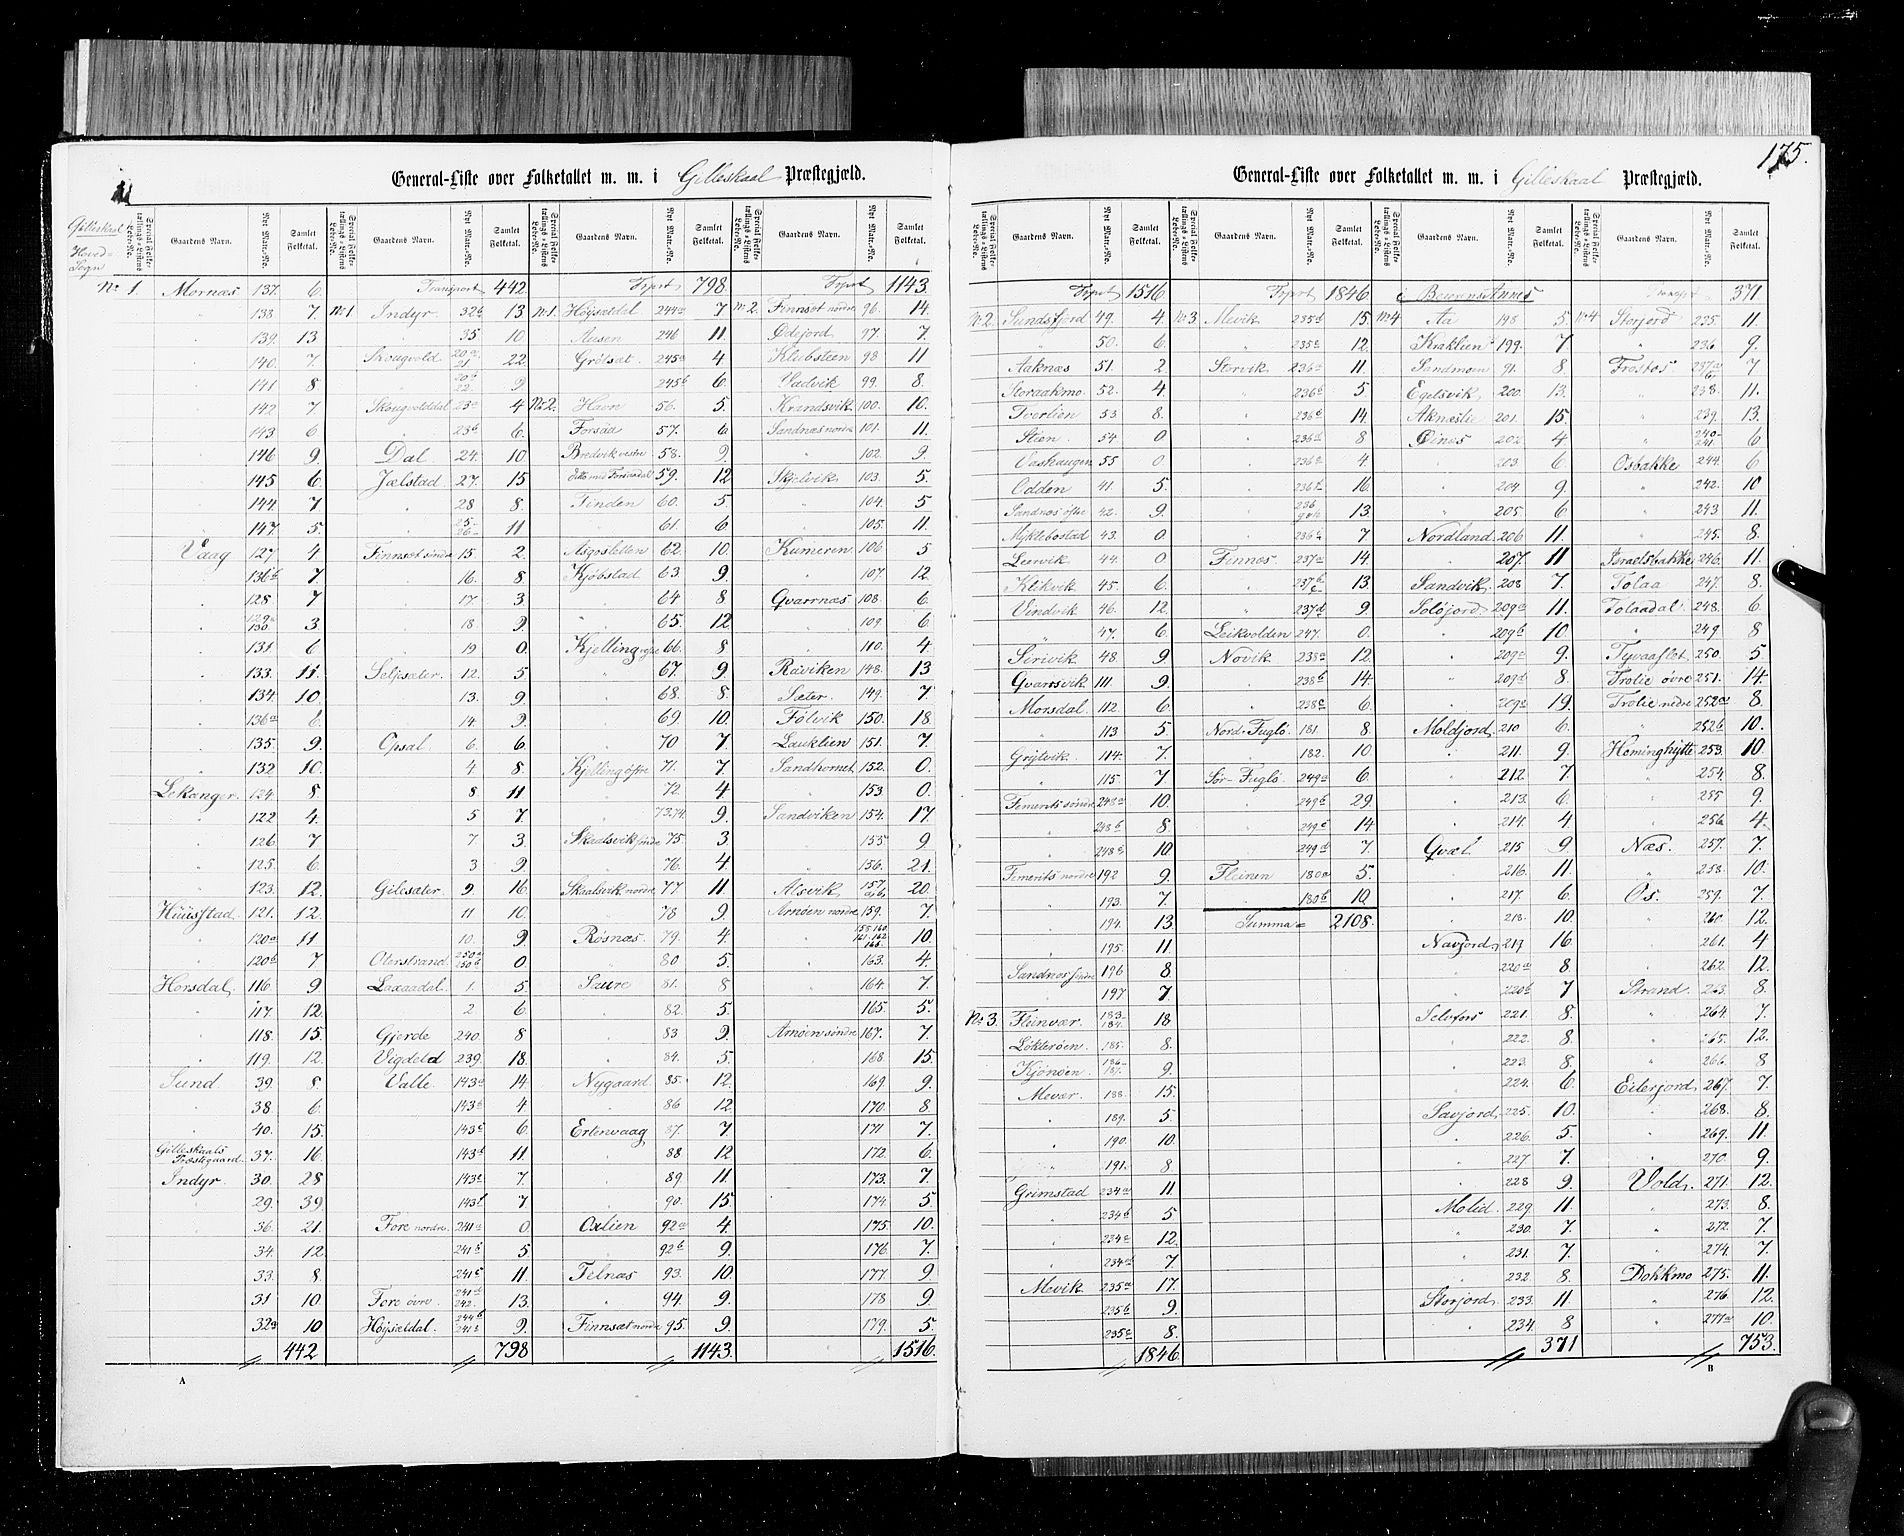 General-Liste over Folketallet m. m. i Gilleskaal Præstegjæld.
Gilleskaal Hoved-Sogn
Special Folketællings-Listens Løbe-No. Gaardens Navn. Nyt Matr.-No. Samlet Folketal.
No 1. Mornæs 137. 6.
" 138 7
" 139. 13
" 140. 7.
" 141 8
" 142 7.
" 143 6
" 146 9.
" 145 6
" 144 7
" 147. 5.
Vaag 127. 4
136b 7
" 128. 7
" 129a 130 3
131 6
" 133. 11.
" 134. 10
" 136a 6.
" 135. 9.
" 132 10.
Lekanger. 124. 8
" 122 4.
" 126 7
" 125. 6.
" 123. 12.
Hüüsstad. 121. 12.
" 120a 11
" 120b 7
Horsdal, 116 9
" 117. 12
" 118. 15
" 119. 12
Sund 39. 8
" 38. 6.
" 40. 15.
Gilleskaals Præstegaard. 37. 16.
Indyr. 30. 28
29. 39.
36. 21.
34. 12.
33. 8.
31 10
32a 10
442
Transport 442
No 1 Indyr. 32b 13
" 35 10
Skougvold 20a 21 22
" 20b 22. 9
Skougvolddal 23a 4
" 23b 6.
Dal 24. 10
Jælstad. 27. 15
" 28 8.
" 25- 26- 11
Finnsæt søndre 15. 2.
" 16. 8.
" 17. 3
" 18. 9
" 19 0.
Selsæter. 12. 5
" 13. 9
" 14. 9
Opsal 6. 6
" 4. 8.
" 8 11
" 5 7.
" 7. 3
" 3 9
Gilesæter. 9. 16
" 11 10.
" 10. 9
Oterstrand. 250a 250b 0
Laxaadal. 1. 5
" 2 6.
Gjerde 240. 8
Vigdeld 239. 18.
Valle 143a 14
" 143b 4
" 143c 6
" 143d 11
" 143e 7.
" 143f 7
Fore nordre 241a 0
" 241b 5.
" 241c 11
Fore øvre 241d 242. 13.
Højsætdal. 244b 9.
798
Trprt 798.
No 1. Højsætdal 244a 7
Ausen 246 11
Grølsæt. 245a 4
" 245b 6.
No 2. Havn 56. 5.
Forsaa 57. 6
Bredvik vestre 58. 9.
59. 12
Finden 60. 5
" 61. 6
62. 10.
Kjøbstad 63. 9.
" 64 8
" 65. 12
Kjelling vestre 66. 8
" 67. 9
" 68. 8
" 69 10.
" 70 7
Kjelling østre 71. 7.
" 72 4
" 73.74. 9.
Skaalsvik søndre 75 3.
" 76. 4
Skaalsvik nordre 77 11
" 78 9
Røsnæs. 79. 4.
" 80 5.
Saure 81. 8
" 82. 5.
" 83 9
" 84. 5
Nygaard. 85. 12.
" 86 12.
Ertenvaag 87 7
" 88 12.
" 89 11.
" 90. 15.
Oxlien 92a 4
" 92b 9.
Felnæs 93. 10
" 94. 9.
Finnsæt nordre 95. 9.
1143.
Trprt 1143.
No 2. Finnsæt nordre 96. 14.
Ødejord 97. 7.
Klubsteen 98 11
Vadvik 99. 8.
Krandsvik. 100. 10.
Sandnæs nordre 101. 11
" 102. 9.
Skjelvik. 103. 5.
" 104. 5
" 105. 11.
Kumeren 106 5
" 107. 12
Qvarrnæs 108. 6.
" 109. 6
" 110. 4
Røviken 148. 13
Sæter. 149. 7
Følvik 150. 18
Lauklien 151. 7.
Sandhornet 152. 0.
" 153 0.
Sandviken 154. 17.
" 155 9
" 156. 21.
Alsvik 157 a,b 20
Arnøen nordre 159. 7.
161. 162 10.
" 163. 4.
" 164. 7.
" 165. 5.
Arnøen søndre 167. 7
" 168 15.
" 169. 9.
170. 8.
171 7.
172. 6
173. 7
174. 5
175 10.
176. 7.
177. 9
178 9
179. 5
1516.
A
175.
General-Liste over Folketallet m. m. i Gilleskaal Præstegjæld.
Special Folketællings-Listens Løbe-No. Gaardens Navn. Nyt Matr.-No. Samlet Folketal.
Trprt 1516
No 2. Sundsfjord 49. 4.
" 50. 6.
Aaknæs 51. 2
Storaakmo 52. 4.
Tverlien 53 8.
Stien. 54 0
Vashaugen 55 0.
Odden 41. 5.
Sandnæs østre 42. 9.
Myklebostad 43. 0.
Leervik 44. 0
Klikvik 45. 6.
Vindvik 46. 12.
" 47. 6.
Sørivik 48. 9
Qvarsvik 111 9.
Morsdal 112 6.
" 113 5
Grytvik 114. 7.
" 115. 7
Femerits søndre 248a 10.
" 248b 8.
" 248c 10.
Femerits nordre 192 9.
" 193. 7.
" 194. 13
" 195. 11
Sandnæs søndre 196 8.
" 197 7.
No 3. Fleinvær. 183- 184. 18
Løkterøen 185. 8.
Kjønøen 186- 187. 9.
Mevær. 188. 15.
" 189. 5
" 190. 10.
" 191. 8
Grimstad 234a 11.
" 234b 5
" 234c 12.
" 234d 7
Mevik 235a 17.
" 235b 9.
" 235c 8.
1846.
Trprt 1846.
No 3. Mevik 235d 15.
" 235e 12.
Storvik 236a 11.
" 236b 5
" 236c 14.
" 236d 8
" 236e 4.
" 236f 16.
" 236 g&h 13.
" 236i 7
Finnes 237a 14.
" 237b c 13.
" 237d 9
Leikvolden 247. 0.
Novik 238a 12.
" 238b 14.
" 238c 6.
Nord-Fuglø. 181. 8.
" 182. 10
Sør-Fuglø. 249a 6.
" 249b 29.
" 249c 14.
" 249d 7.
Fleinen 180a 5.
" 180b 10.
Summa= 2108.
i Beierens Annex
No 4. Aa 198 5.
Kraklien 199. 7
Sandmoen 91. 8
Egelsvik 200. 13.
Aknæslie 201. 15.
Øinæs 202. 4
" 203. 6
" 204 9.
" 205. 6
Nordland 206 11.
" 207. 11
Sandvik 208 7.
Soløjord. 209a 11.
" 209b 10.
" 209c 9.
" 209d 8.
" 209e 19.
Moldjord. 210 6.
" 211. 9.
" 212. 7
" 213. 6.
" 214. 4
Qvæl 215 9
" 216. 11.
" 217. 6
" 218. 10.
Navjord. 219 16.
220a 8.
220b 7
Selvfors 221. 8.
" 222. 8.
" 223. 8
" 224. 6.
Savjord. 225. 10.
" 226. 5.
" 227 7.
" 228 9
Molid 229. 11.
" 230. 7.
" 231. 7.
" 232. 8.
Storjord. 233. 11.
" 234. 8
371
Transprt 371
No 4. Storjord 235. 11.
" 236 9.
Trøstøs 237a 7
" 238. 11.
" 239. 13.
" 240- 241. 6
Osbakke 244. 6
" 242. 10
" 243 11
" 245. 8.
Israelsbakke 246. 11.
Tolaa 247. 8.
Tolaadal 248. 6.
" 249 8
Tyvaaflot 250. 5
Trolie øvre 251. 14.
Trolie nedre 252a 8.
" 252b 10.
Heminghytte 253. 10
" 254 8.
" 255 9.
" 256. 4
Næs. 257. 7
" 258. 10.
Os. 259. 7
" 260 12
" 261. 4
" 262. 12.
Strand. 263. 8.
" 264 7.
" 265. 12
" 266. 8
Eilerjord. 267. 7.
" 268. 8
" 269. 11.
" 270 9
Vold. 271. 12.
" 273. 8
" 272. 7
" 274. 7.
Dokkmo 275. 11.
" 276 12
" 277a 10.
753.
B